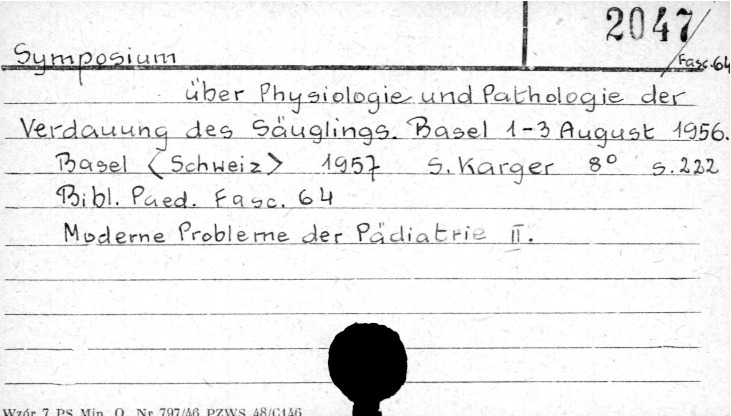 2047/
Fasc. 64
Symposium
über Physiologie und Pathologie der
Verdauung des Säuglings. Basel 1-3 August 1956.
Basel <Schweiz> 1957 S. Karger 8° s. 222
Bibl. Paed. Fasc. 64
Moderne Probleme der Pädiatrie II.
Wzór 7 PS Min. O. Nr 797/46 PZWS 48/C146